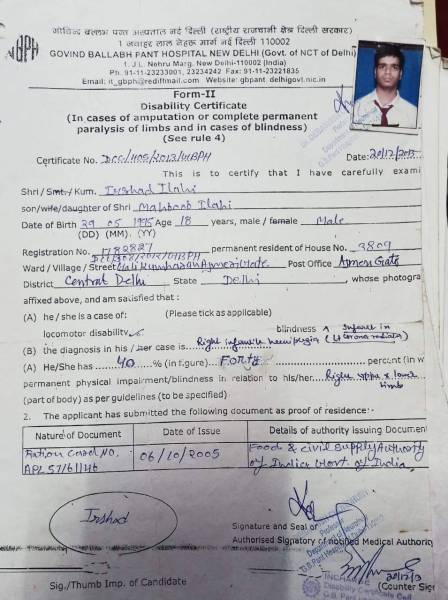 गोविन्द बल्लभ पन्त अस्पताल नई दिल्ली (राष्ट्रीय राजधानी क्षेत्र दिल्ली सरकार)
1 जवाहर लाल नेहरू मार्ग नई दिल्ली 110002
GOVIND BALLABH PANT HOSPITAL NEW DELHI (Govt. of NCT of Delhi)
1. J.L. Nehru Marg. New Delhi-110002 (India)
Ph. 91-11-23233001, 23234242 Fax: 91-11-23221835
Email: it_gbph@rediffmail.com Website: gbpant.delhigovt.nic.in
Form-II
Disability Certificate
(In cases of amputation or complete permanent
paralysis of limbs and in cases of blindness)
(See rule 4)
Certificate No. Date: 20/12/2013
This is to certify that I have carefully exami
Shri / Smt./ Kum. Irshad Ilahi
son/wife/daughter of Shri Mahboob Ilahi
Date of Birth 29 05 1995 Age 18 years, male / female Male
(DD) (MM). (YY)
Registration No. 1782827 permanent resident of House No. 3809
Ward / Village / Street Post Office Ajmeri Gate
District Central Delhi State Delhi, whose photogra
affixed above, and am satisfied that :
(A) he / she is a case of: (Please tick as applicable)
locomotor disability blindness Infarct in
(B) the diagnosis in his / her case is Right hemiplegia (Lt corona radiata)
(A) He/She has 40 % (in figure) Forty percent (in w
permanent physical impairment/blindness in relation to his/her Right upper & lower limb
(part of body) as per guidelines (to be specified)
2. The applicant has submitted the following document as proof of residence:-
Nature of Document Date of Issue Details of authority issuing Document
Ration Card No. 06/10/2005 Food & civil supply Authority
APL 57161146 of India Govt. of India.
Irshad
Signature and Seal of
Authorised Signatory of notified Medical Authority
20/12/13
Sig./Thumb Imp. of Candidate
(Counter Sig
Disability Certificate Cell
G.B. Pant Hos